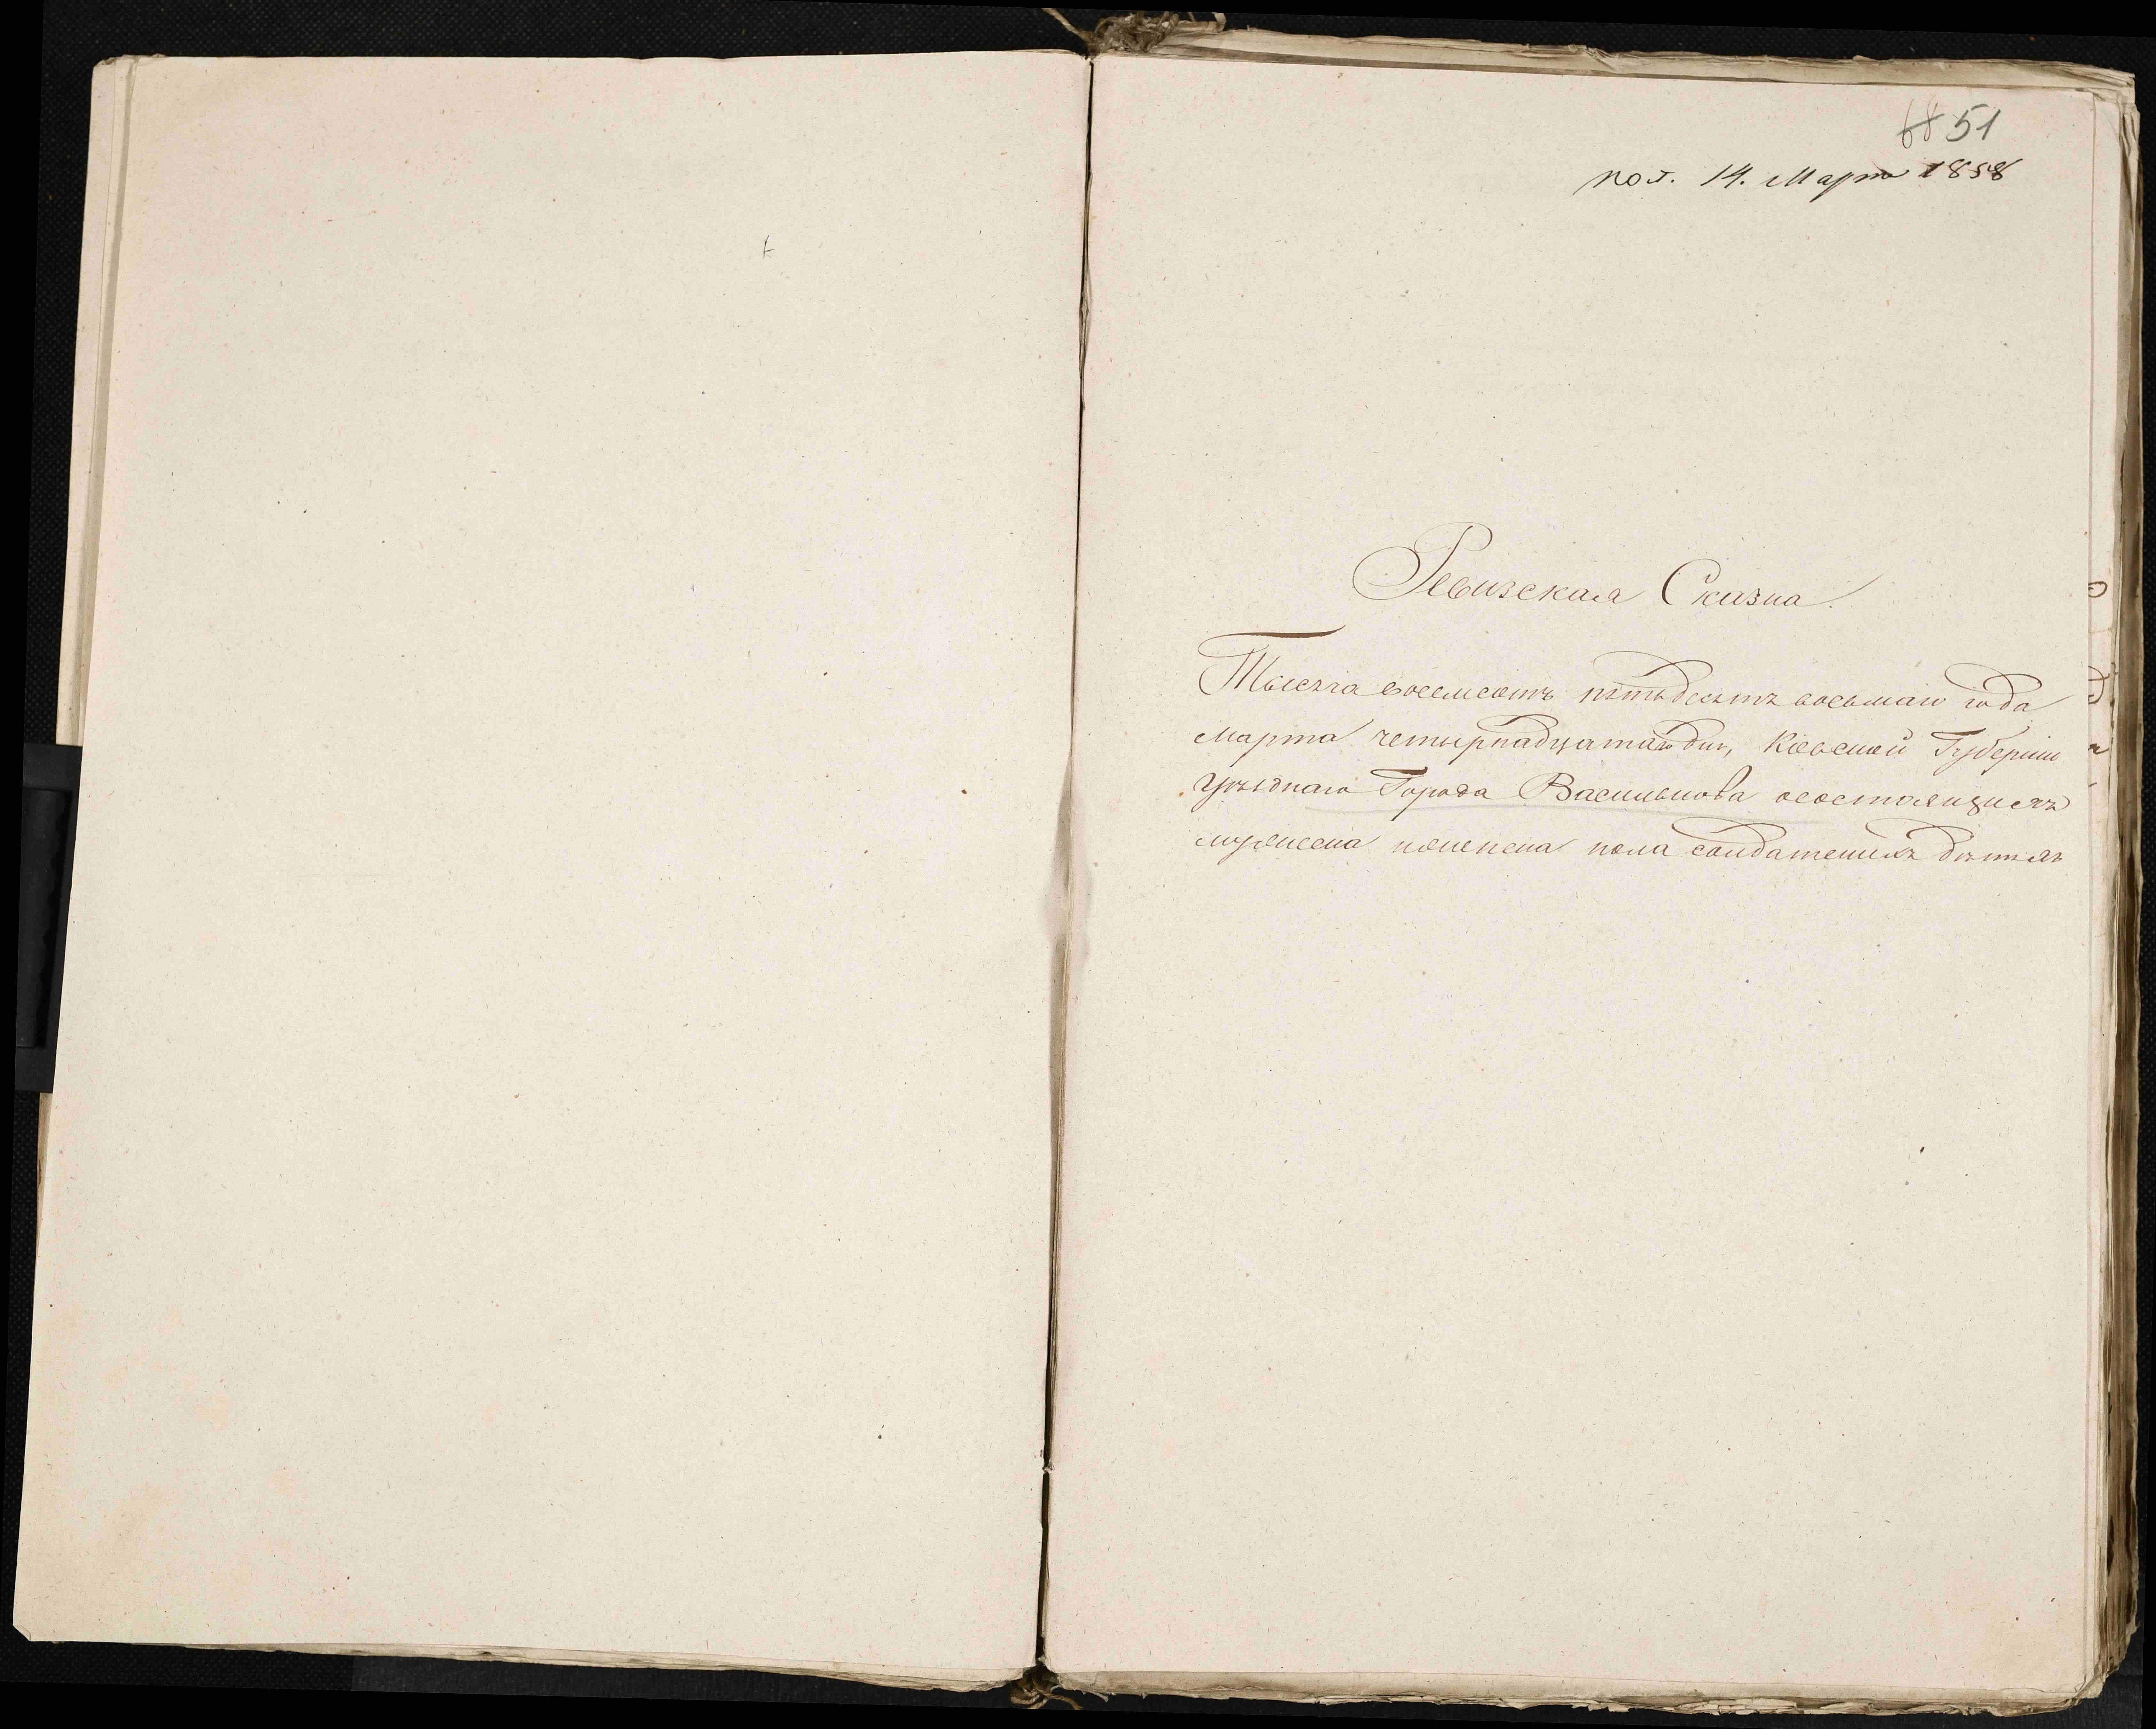 51
пол. 14. Марта 1858
Ревизская Сказка.
Тысяча восемсотъ пятьдесятъ восьмаго года
Марта четырнадцатаго дня, Кіевской Губерніи
Уѣзднаго Города Василькова о состоящихъ
мужеска женска пола солдатскихъ дѣтяхъ